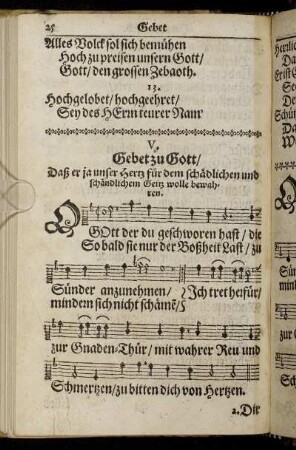 26 Gebet
Alles Volck sol sich bemühen
Hoch zu preisen unsern Gott/
Gott/ den grossen Zebaoth.
13.
Hochgelobet/ hochgeehret/
Sey des HErrn teurer Nam'
V.
Gebet zu Gott/
Daß er ja unser Hertz für dem schädlichen und
schändlichem Geitz wolle bewah-
ren.
O GOtt der du geschworen hast/ die
So bald sie nur der Boßheit Last/ zu
Sünder anzunehmen/ Ich tret herfür/
mindern sich nicht schämē/
zur Gnaden-Thür/ mit wahrer Reu und
Schmertzen/ zu bitten dich von Hertzen.
2. Dir